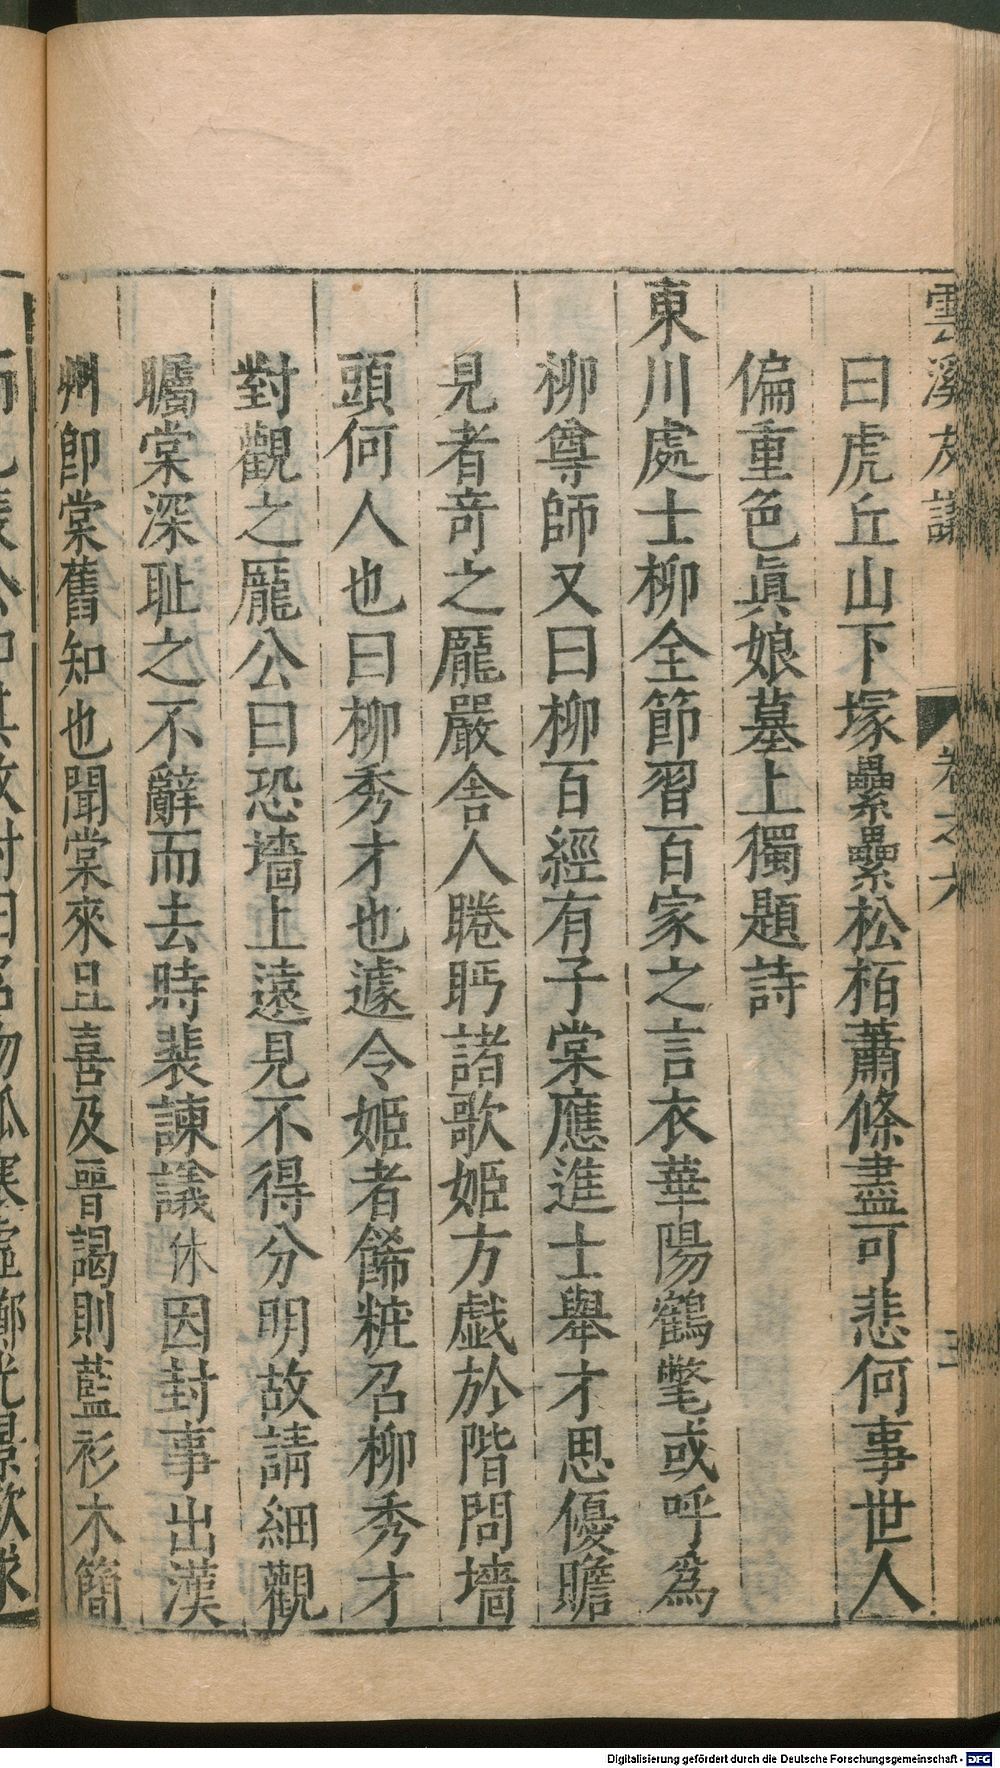 雲溪友議 卷之六 三
曰虎丘山下塚纍纍松栢蕭條盡可悲何事世人
偏重色眞娘墓上獨題詩
東川處士柳全節習百家之言衣華陽鶴氅或呼爲
柳尊師又曰柳百經有子棠應進士舉才思優贍
見者竒之龎嚴舍人睠眄諸歌姬方戯於階問墻
頭何人也曰柳秀才也遽令姬者餙粧召柳秀才
對觀之龎公曰恐墻上遠見不得分明故請細觀
矚棠深耻之不辭而去時裴諫議休因封事出漢
州卽棠舊知也聞棠來且喜及晋謁則藍衫木簡
Digitalisierung gefördert durch die Deutsche Forschungsgemeinschaft - DFG